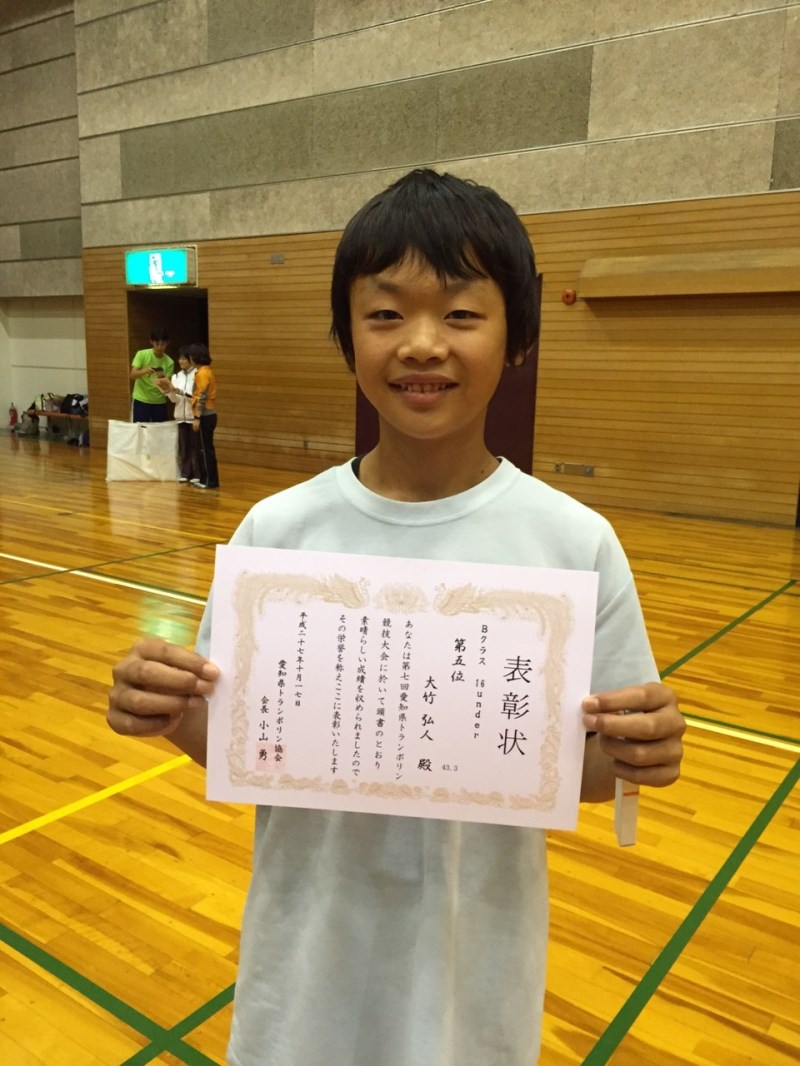 表彰状
Bクラス 16under
第五位
大竹 弘人 殿
43.3
あなたは第七回愛知県トランポリン
競技大会に於いて頭書のとおり
素晴らしい成績を収められましたので
その栄誉を称えここに表彰いたします
平成二十七年十月一七日
愛知県トランポリン協会
会長 小山 勇